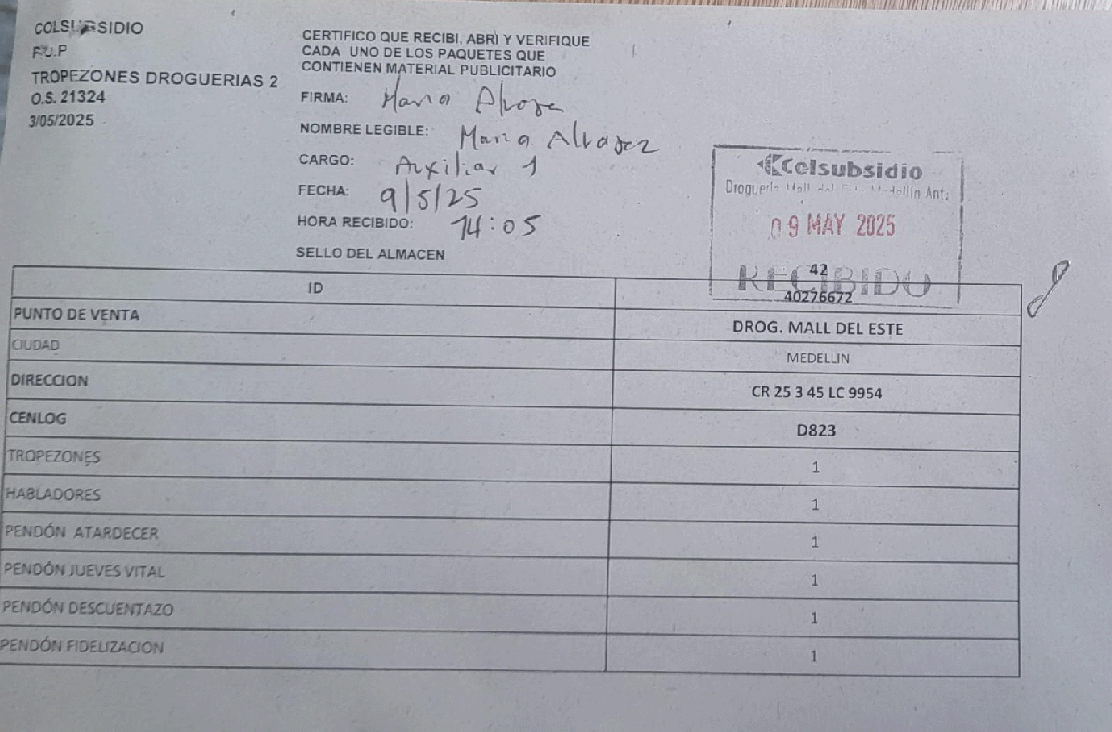 COLSUBSIDIO
P.U.P
TROPEZONES DROGUERIAS 2
O.S. 21324
3/05/2025
CERTIFICO QUE RECIBI, ABRI Y VERIFIQUE
CADA UNO DE LOS PAQUETES QUE
CONTIENEN MATERIAL PUBLICITARIO
FIRMA: Maria Alvarez
NOMBRE LEGIBLE: Maria Alvarez
CARGO: Auxiliar 1
FECHA: 9/5/25
HORA RECIBIDO: 14:05
SELLO DEL ALMACEN
Colsubsidio
Droguería Mall del Medellín Ant.
09 MAY 2025
RECIBIDO
42
ID 40276672
PUNTO DE VENTA DROG. MALL DEL ESTE
CIUDAD MEDELLIN
DIRECCION CR 25 3 45 LC 9954
CENLOG D823
TROPEZONES 1
HABLADORES 1
PENDÓN ATARDECER 1
PENDÓN JUEVES VITAL 1
PENDÓN DESCUENTAZO 1
PENDÓN FIDELIZACION 1